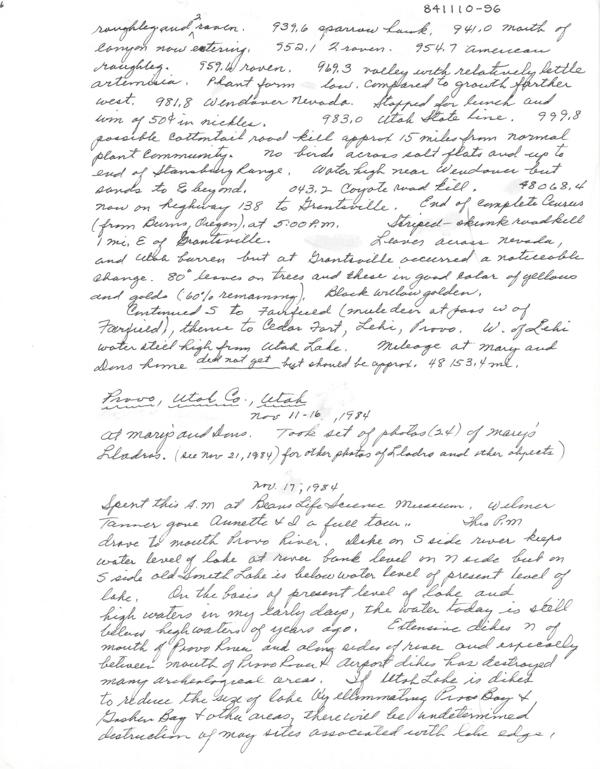 841110-96
roughleg and 2 raven. 939.6 sparrow hawk. 941.0 mouth of
canyon now entering. 952.1 2 raven. 954.7 American
roughleg. 959.6 raven. 969.3 valley with relatively little
artemisia. Plant form low. Compared to growth farther
west. 981.8 Wendover Nevada. Stopped for lunch and
win of 50¢ in nickles. 983.0 Utah State line. 999.8
possible cottontail road kill approx 15 miles from normal
plant community. No birds across salt flats and up to
end of Stansbury Range. Water high near Wendover but
sands to E beyond. 043.2 Coyote road kill. 48068.4
now on highway 138 to Grantsville. End of complete Cursus
(from Burns, Oregon), at 5:00 P.M. Striped-skunk roadkill
1 mi. E of Grantsville. Leaves across Nevada,
and Utah barren but at Grantsville occurred a noticeable
change. 80° leaves on trees and these in good color of yellows
and golds (60% remaining). Black willow golden.
Continued S to Fairfield (mule deer at pass W of
Fairfield), thence to Cedar Fort, Lehi, Provo. W. of Lehi
water still high from Utah Lake. Mileage at Mary and
Dons home did not get but should be approx. 48153.4 mi.
Provo, Utah Co., Utah
Nov 11-16, 1984
At Mary's and Dons. Took set of photos (24) of Mary's
Lladros. (see Nov 21, 1984) for other photos of Lladro and other objects)
Nov. 17, 1984
Spent this A.M at Beans Life Science Museum. Wilmer
Tanner gave Annette & I a full tour.. This P.M
drove to mouth Provo River. Dike on S side river keeps
water level of lake at river bank level on N side but on
S side old Smith Lake is below water level of present level of
lake. On the basis of present level of lake and
high waters in my early days, the water today is still
below high waters of years ago. Extensive dikes N of
mouth of Provo River and along sides of river and especially
between mouth of Provo River & Airport dikes has destroyed
many archeological areas. If Utah Lake is diked
to reduce the size of lake by elliminating Provo Bay &
Goshen Bay & other areas, there will be undetermined
destruction of many sites associated with lake edge,